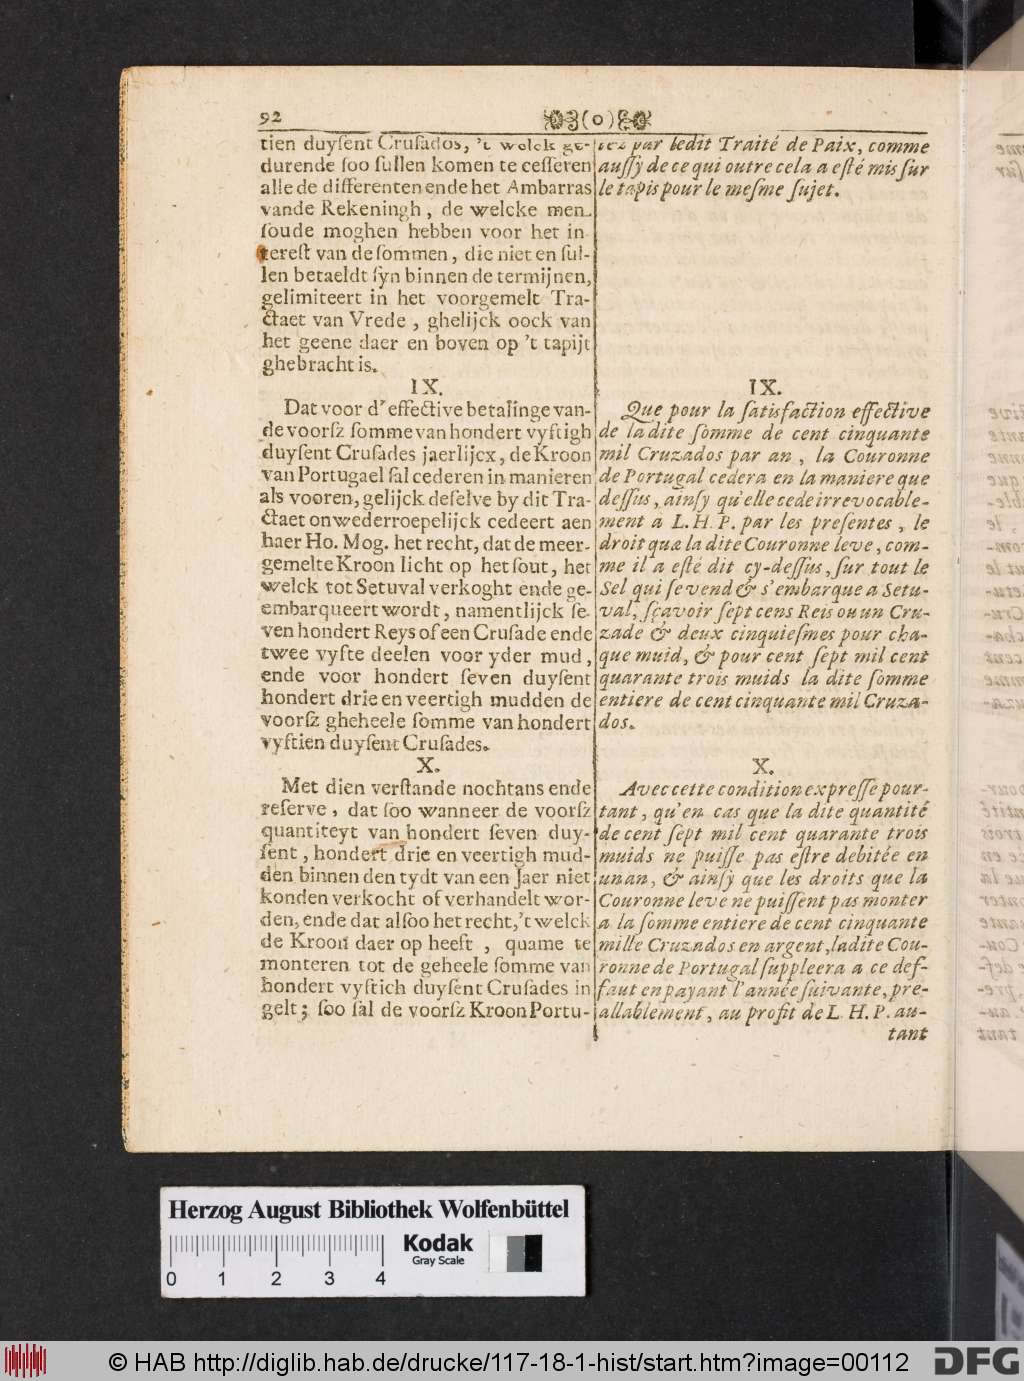 92 (o)
tien duyſent Cruſados, 't welck ge-
durende ſoo ſullen komen te ceſſeren
alle de differenten ende het Ambarras
vande Rekeningh, de welcke men
ſoude moghen hebben voor het in
tereſt van de ſommen, die niet en ſul-
len betaeldt ſyn binnen de termijnen,
gelimiteert in het voorgemelt Tra-
ctaet van Vrede, ghelijck oock van
het geene daer en boven op 't tapijt
ghebracht is.
IX.
Dat voor d'effective betalinge van-
de voorſz ſomme van hondert vyftigh
duyſent Cruſades jaerlijcx, de Kroon
van Portugael ſal cederen in manieren
als vooren, gelijck deſelve by dit Tra-
ctaet onwederroepelijck cedeert aen
haer Ho. Mog. het recht, dat de meer-
gemelte Kroon licht op het ſout, het
welck tot Setuval verkoght ende ge-
embarqueert wordt, namentlijck ſe-
ven hondert Reys of een Cruſade ende
twee vyfte deelen voor yder mud,
ende voor hondert ſeven duyſent
hondert drie en veertigh mudden de
voorſz gheheele ſomme van hondert
vyftien duyſent Cruſades.
X.
Met dien verſtande nochtans ende
reſerve, dat ſoo wanneer de voorſz
quantiteyt van hondert ſeven duy-
ſent, hondert drie en veertigh mud-
den binnen den tydt van een Jaer niet
konden verkocht of verhandelt wor-
den, ende dat alſoo het recht, 't welck
de Kroon daer op heeft, quame te
monteren tot de geheele ſomme van
hondert vyftich duyſent Cruſades in
gelt; ſoo ſal de voorſz Kroon Portu-
tez par ledit Traité de Paix, comme
auſſy de ce qui outre cela a eſté mis ſur
le tapis pour le meſme ſujet.
IX.
Que pour la ſatisfaction effective
de la dite ſomme de cent cinquante
mil Cruzados par an, la Couronne
de Portugal cedera en la maniere que
deſſus, ainſy qu'elle cede irrevocable-
ment a L. H. P. par les preſentes, le
droit qua la dite Couronne leve, com-
me il a eſté dit cy-deſſus, ſur tout le
Sel qui ſe vend & s'embarque a Setu-
val, ſçavoir ſept cens Reis ou un Cru-
zade & deux cinquieſmes pour cha-
que muid, & pour cent ſept mil cent
quarante trois muids la dite ſomme
entiere de cent cinquante mil Cruza-
dos.
X.
Avec cette condition expreſſe pour-
tant, qu'en cas que la dite quantité
de cent ſept mil cent quarante trois
muids ne puiſſe pas eſtre debitée en
un an, & ainſy que les droits que la
Couronne leve ne puiſſent pas monter
a la ſomme entiere de cent cinquante
mille Cruzados en argent, la dite Cou-
ronne de Portugal ſuppleera a ce def-
faut en payant l'année ſuivante, pre-
allablement, au profit de L. H. P. au-
tant
Herzog August Bibliothek Wolfenbüttel
Kodak
Gray Scale
0 1 2 3 4
© HAB http://diglib.hab.de/drucke/117-18-1-hist/start.htm?image=00112
DFG